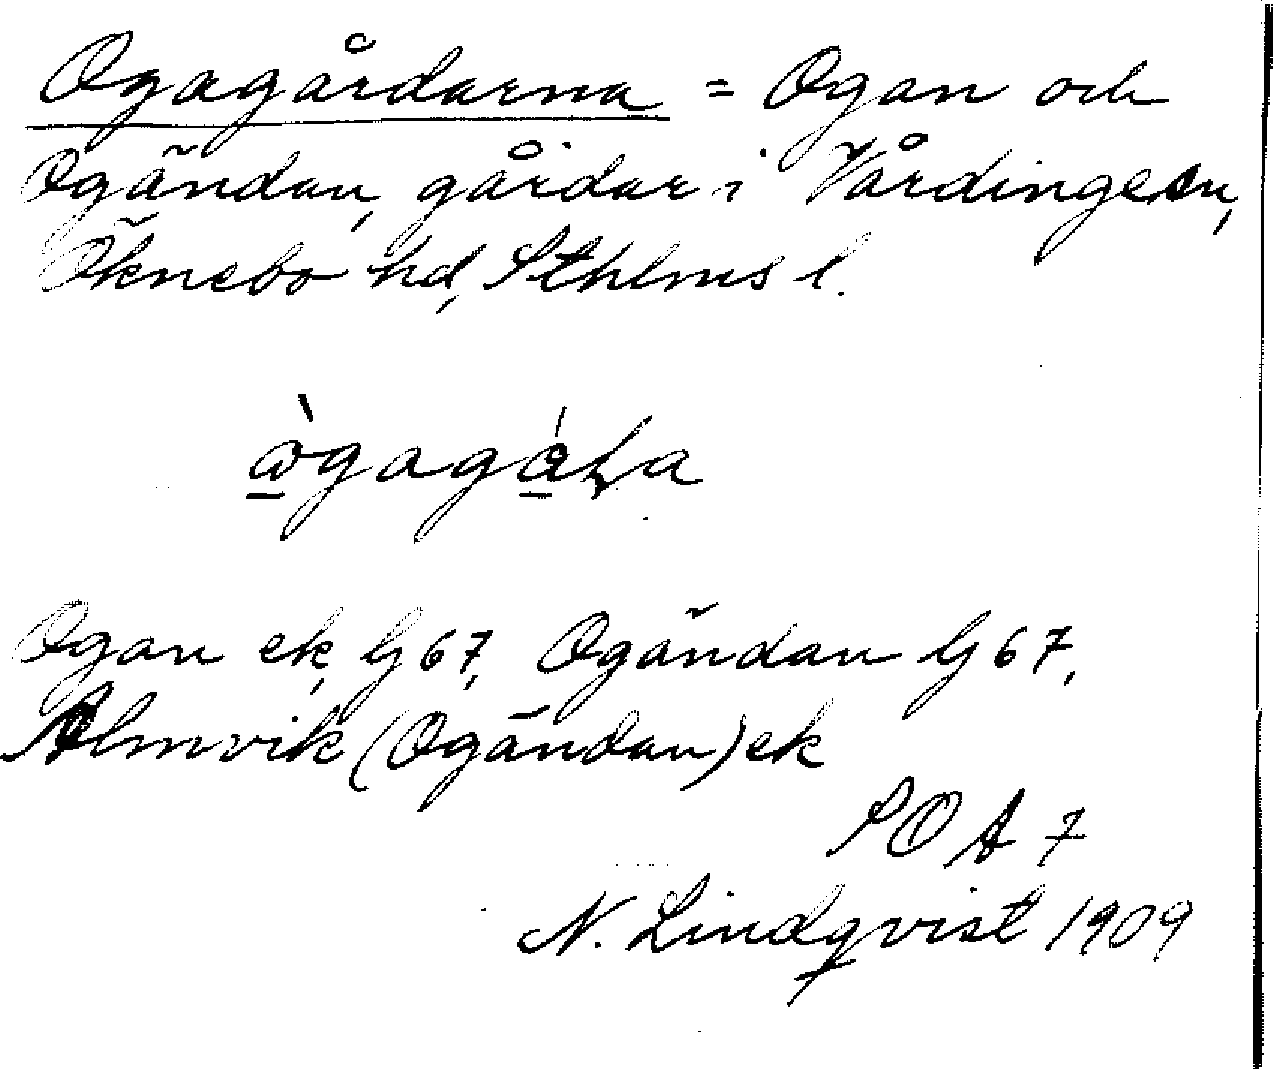 Ogagårdarna = Ogan och
Ogändan, gårdar i Vårdinge sn,
Öknebo hd, Sthlms l.
Ogan ek, G 67, Ogändan G 67,
Almvik (Ogändan) ek
SOA 7
N. Lindqvist 1909